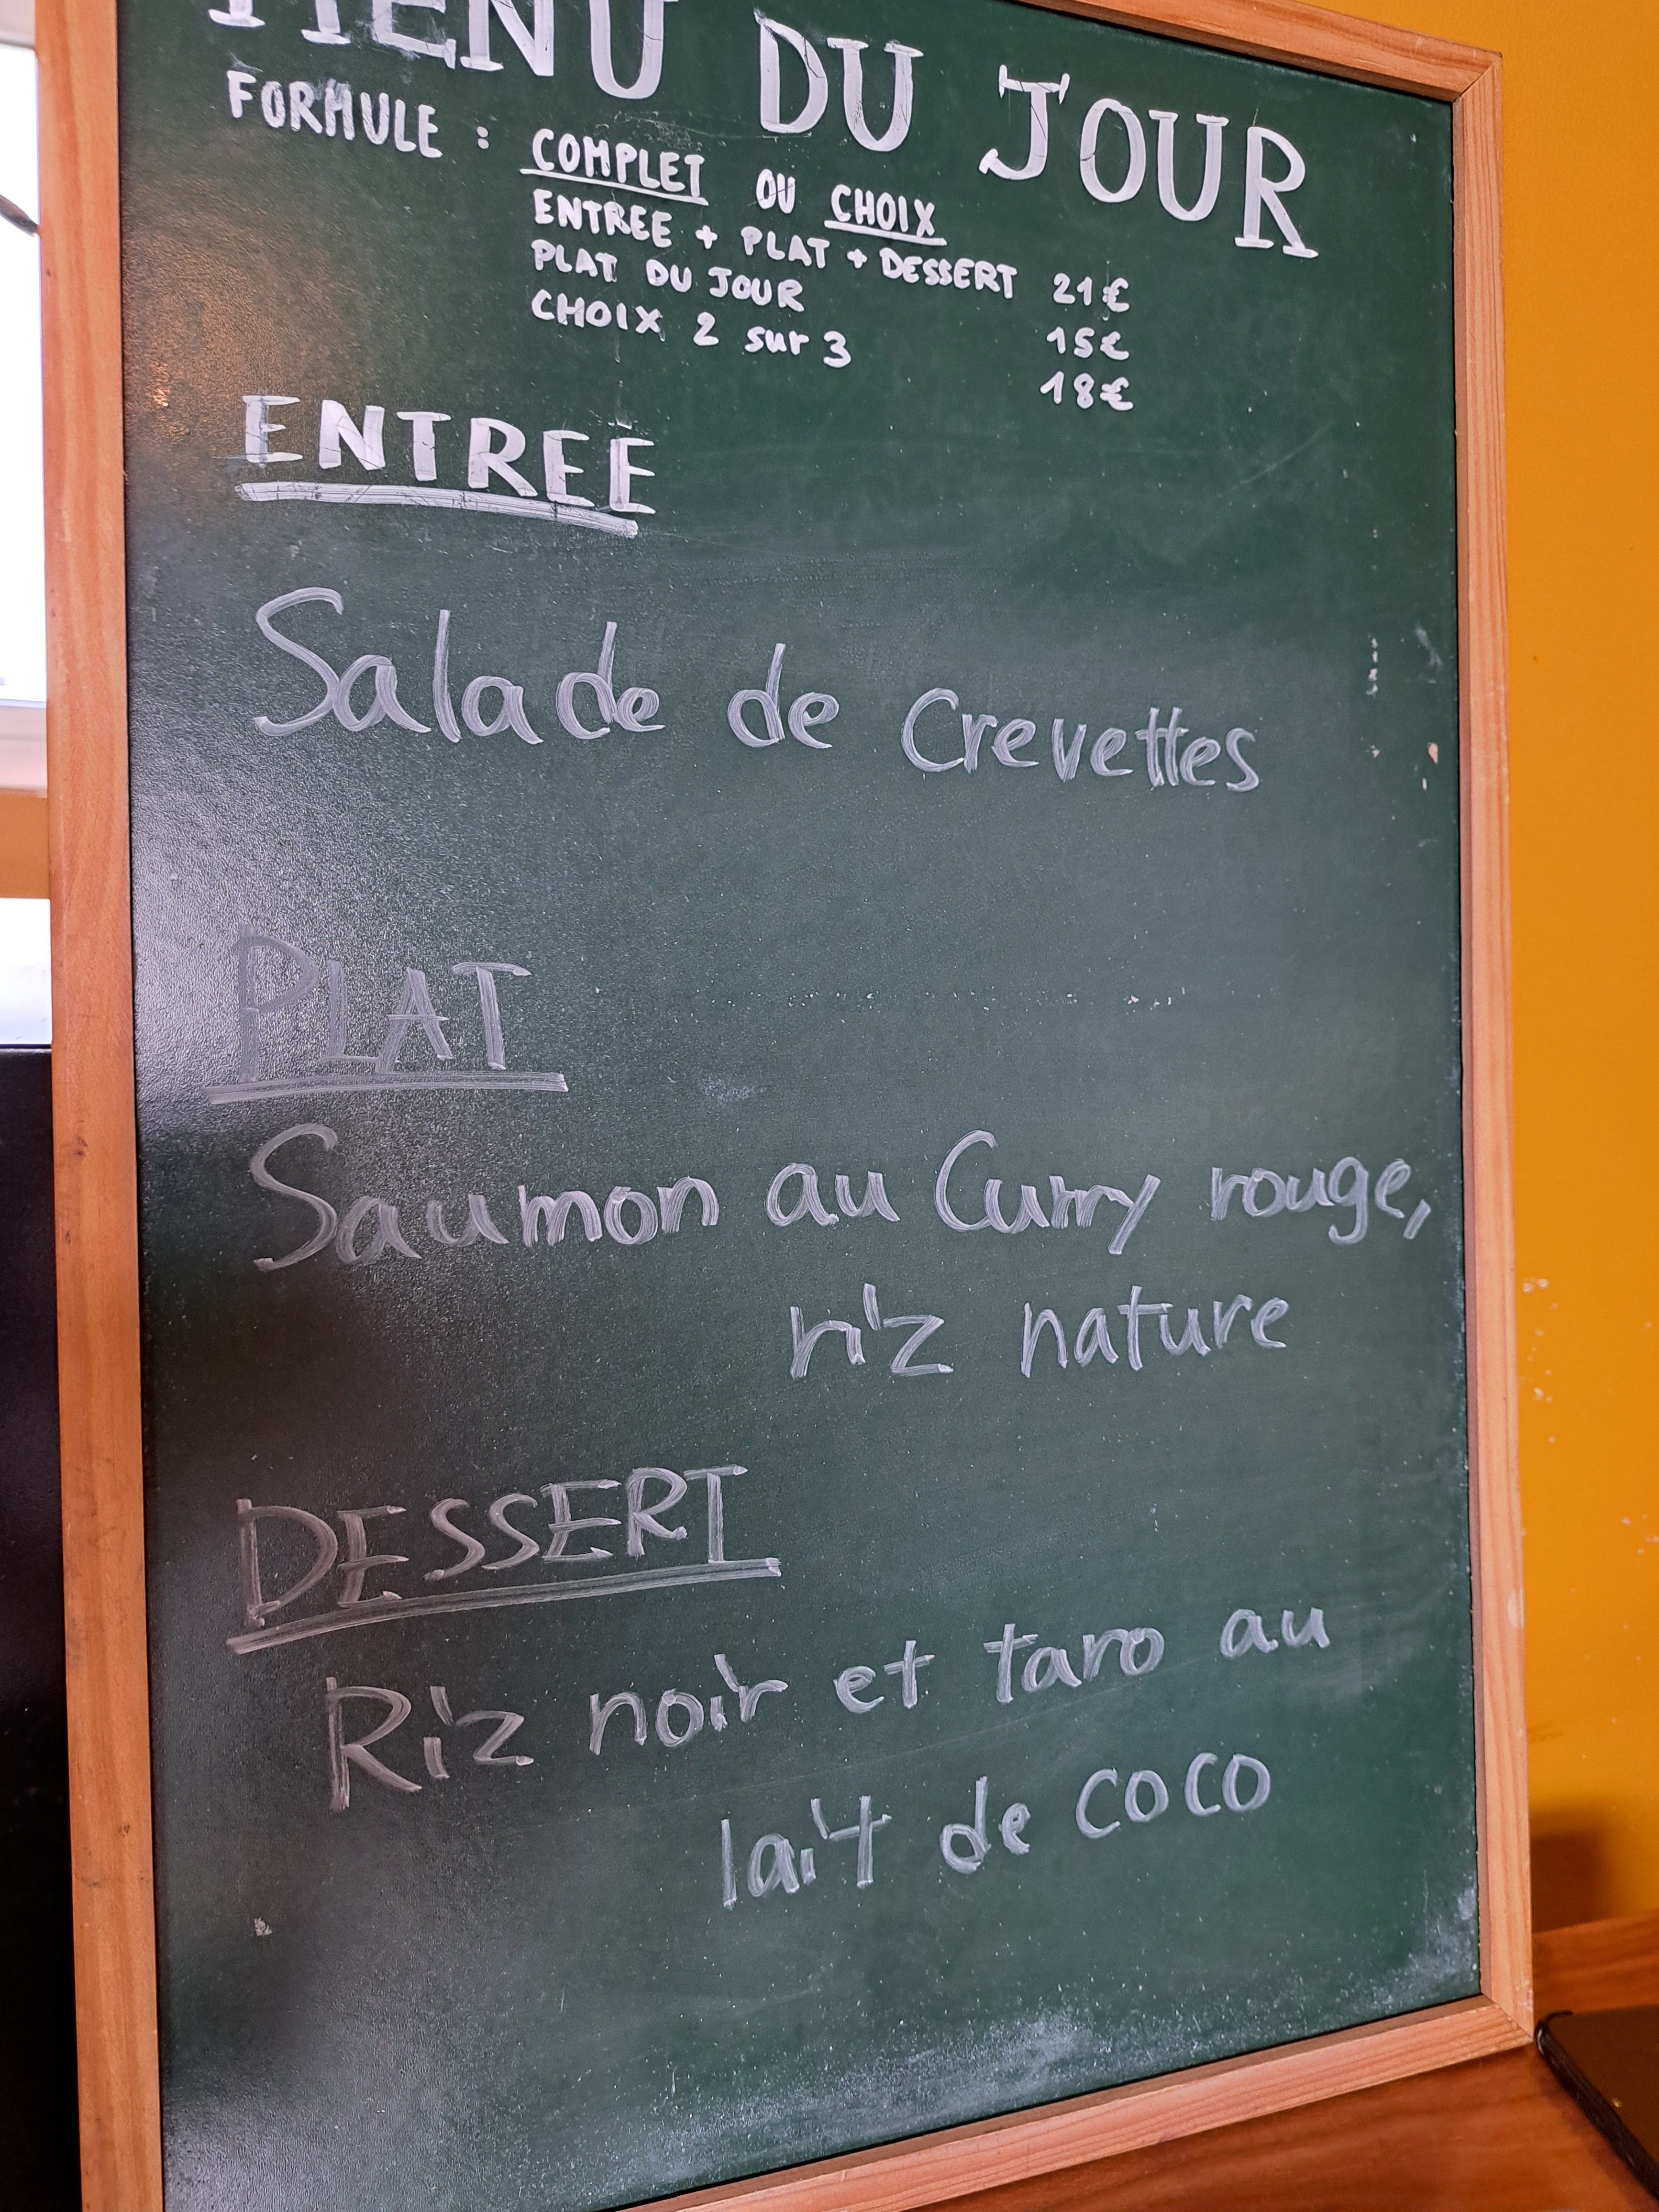 MENU DU JOUR
FORMULE : COMPLET OU CHOIX
ENTREE + PLAT + DESSERT 21€
PLAT DU JOUR 15€
CHOIX 2 sur 3 18€
ENTREE
Salade de Crevettes
PLAT
Saumon au Curry rouge,
riz nature
DESSERT
Riz noir et taro au
lait de coco